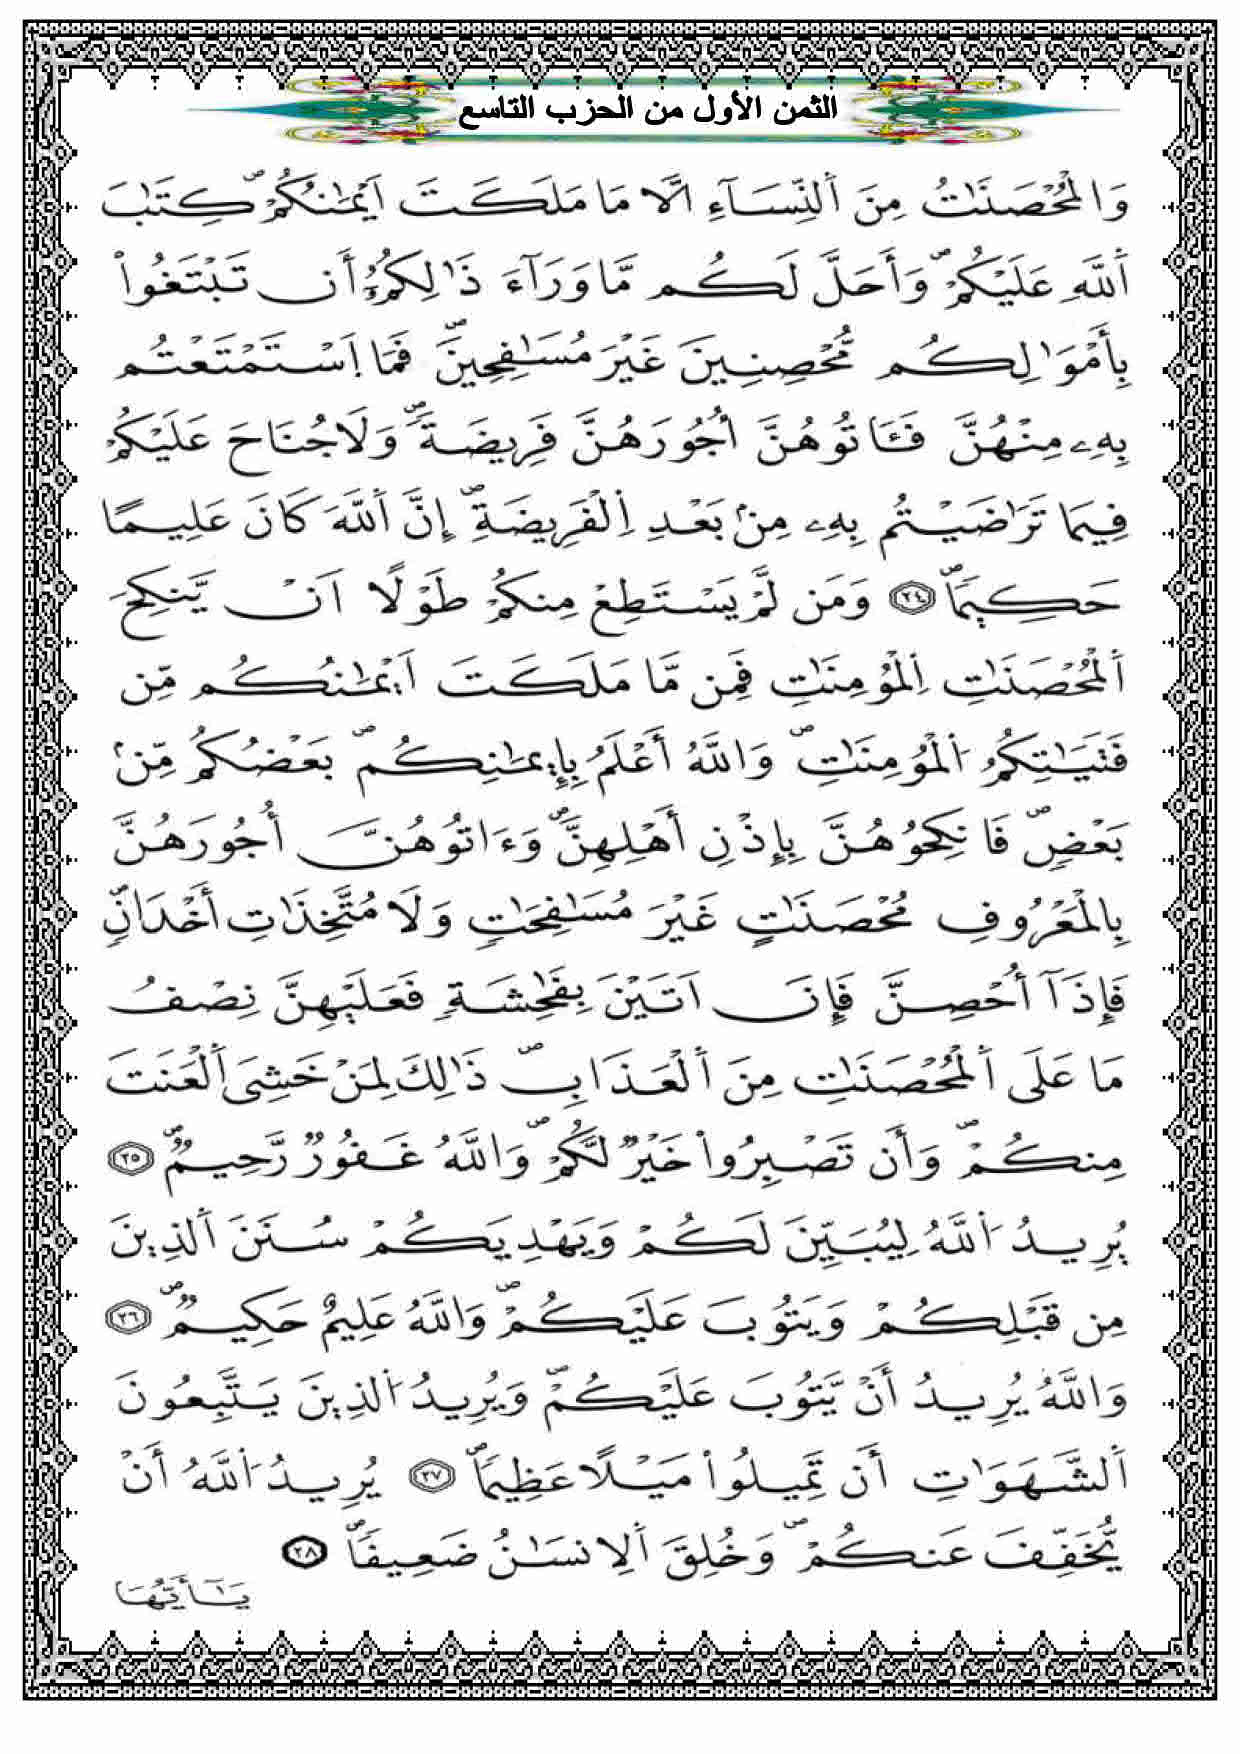 الثمن الأول من الحزب التاسع
وَالْمُحْصَنَٰتُ مِنَ اَ۬لنِّسَآءِ الَّا مَا مَلَكَتَ اَيْمَٰنُكُمْۖ كِتَٰبَ
اَ۬للَّهِ عَلَيْكُمْۖ وَأَحَلَّ لَكُم مَّا وَرَآءَ ذَٰلِكُمُۥٓ أَن تَبْتَغُواْ
بِأَمْوَٰلِكُم مُّحْصِنِينَ غَيْرَ مُسَٰفِحِينَۖ فَمَا اَ۪سْتَمْتَعْتُم
بِهِۦ مِنْهُنَّ فَـَٔاتُوهُنَّ أُجُورَهُنَّ فَرِيضَةٗۖ وَلَا جُنَاحَ عَلَيْكُمْ
فِيمَا تَرَٰضَيْتُم بِهِۦ مِنۢ بَعْدِ اِ۬لْفَرِيضَةِۖ إِنَّ اَ۬للَّهَ كَانَ عَلِيمًا
حَكِيمٗاۖ ٢٤ وَمَن لَّمْ يَسْتَطِعْ مِنكُمْ طَوْلًا اَنْ يَّنكِحَ
اَ۬لْمُحْصَنَٰتِ اِ۬لْمُومِنَٰتِ فَمِن مَّا مَلَكَتَ اَيْمَٰنُكُم مِّن
فَتَيَٰتِكُمُ اُ۬لْمُومِنَٰتِۖ وَاللَّهُ أَعْلَمُ بِإِيمَٰنِكُمۖ بَعْضُكُم مِّنۢ
بَعْضٖۖ فَانكِحُوهُنَّ بِإِذْنِ أَهْلِهِنَّۖ وَءَاتُوهُنَّ أُجُورَهُنَّ
بِالْمَعْرُوفِ مُحْصَنَٰتٍ غَيْرَ مُسَٰفِحَٰتٖ وَلَا مُتَّخِذَٰتِ أَخْدَانٖ
فَإِذَآ أُحْصِنَّ فَإِنَ اَتَيْنَ بِفَٰحِشَةٖ فَعَلَيْهِنَّ نِصْفُ
مَا عَلَى اَ۬لْمُحْصَنَٰتِ مِنَ اَ۬لْعَذَابِۖ ذَٰلِكَ لِمَنْ خَشِيَ اَ۬لْعَنَتَ
مِنكُمْۖ وَأَن تَصْبِرُواْ خَيْرٞ لَّكُمْۖ وَاللَّهُ غَفُورٞ رَّحِيمٞۖ ٢٥
يُرِيدُ اُ۬للَّهُ لِيُبَيِّنَ لَكُمْ وَيَهْدِيَكُمْ سُنَنَ اَ۬لذِينَ
مِن قَبْلِكُمْ وَيَتُوبَ عَلَيْكُمْۖ وَاللَّهُ عَلِيمٌ حَكِيمٞۖ ٢٦
وَاللَّهُ يُرِيدُ أَنْ يَّتُوبَ عَلَيْكُمْۖ وَيُرِيدُ اُ۬لذِينَ يَتَّبِعُونَ
اَ۬لشَّهَوَٰتِ أَن تَمِيلُواْ مَيْلًا عَظِيمٗاۖ ٢٧ يُرِيدُ اُ۬للَّهُ أَنْ
يُّخَفِّفَ عَنكُمْۖ وَخُلِقَ اَ۬لِانسَٰنُ ضَعِيفٗاۖ ٢٨
يَٰٓأَيُّهَا